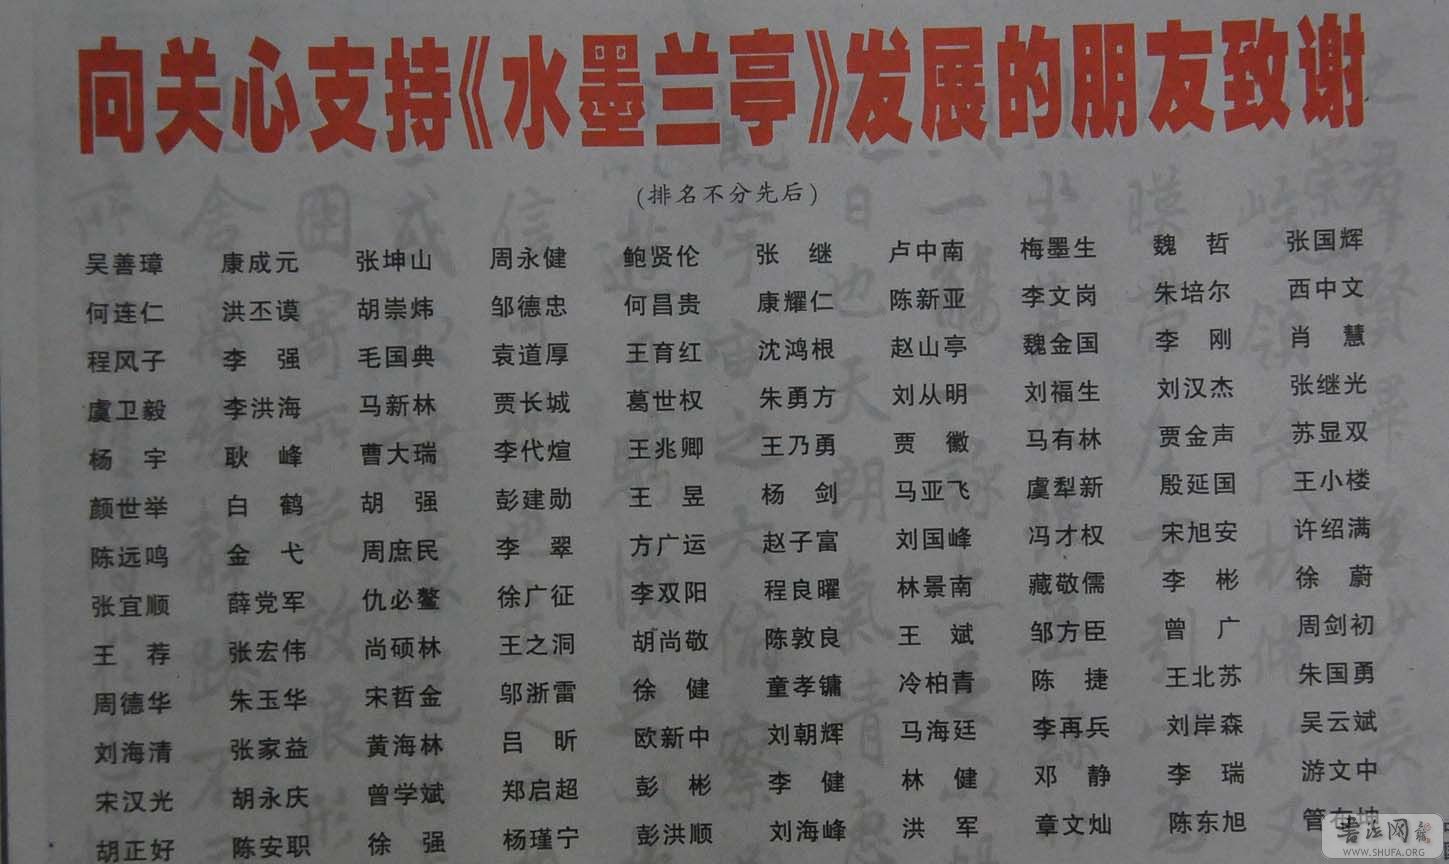 向关心支持《水墨兰亭》发展的朋友致谢
(排名不分先后)
吴善璋 康成元 张坤山 周永健 鲍贤伦 张 继 卢中南 梅墨生 魏 哲 张国辉
何连仁 洪丕谟 胡崇炜 邹德忠 何昌贵 康耀仁 陈新亚 李文岗 朱培尔 西中文
程风子 李 强 毛国典 袁道厚 王育红 沈鸿根 赵山亭 魏金国 李 刚 肖 慧
虞卫毅 李洪海 马新林 贾长城 葛世权 朱勇方 刘从明 刘福生 刘汉杰 张继光
杨 宇 耿 峰 曹大瑞 李代煊 王兆卿 王乃勇 贾 徽 马有林 贾金声 苏显双
颜世举 白 鹤 胡 强 彭建勋 王 昱 杨 剑 马亚飞 虞犁新 殷延国 王小楼
陈远鸣 金 弋 周庶民 李 翠 方广运 赵子富 刘国峰 冯才权 宋旭安 许绍满
张宜顺 薛党军 仇必鳌 徐广征 李双阳 程良曜 林景南 藏敬儒 李 彬 徐 蔚
王 荐 张宏伟 尚硕林 王之洞 胡尚敬 陈敦良 王 斌 邹方臣 曾 广 周剑初
周德华 朱玉华 宋哲金 邬浙雷 徐 健 童孝镛 冷柏青 陈 捷 王北苏 朱国勇
刘海清 张家益 黄海林 吕 昕 欧新中 刘朝辉 马海廷 李再兵 刘岸森 吴云斌
宋汉光 胡永庆 曾学斌 郑启超 彭 彬 李 健 林 健 邓 静 李 瑞 游文中
胡正好 陈安职 徐 强 杨瑾宁 彭洪顺 刘海峰 洪 军 章文灿 陈东旭 管在坤
书法网
WWW.SHUFA.ORG